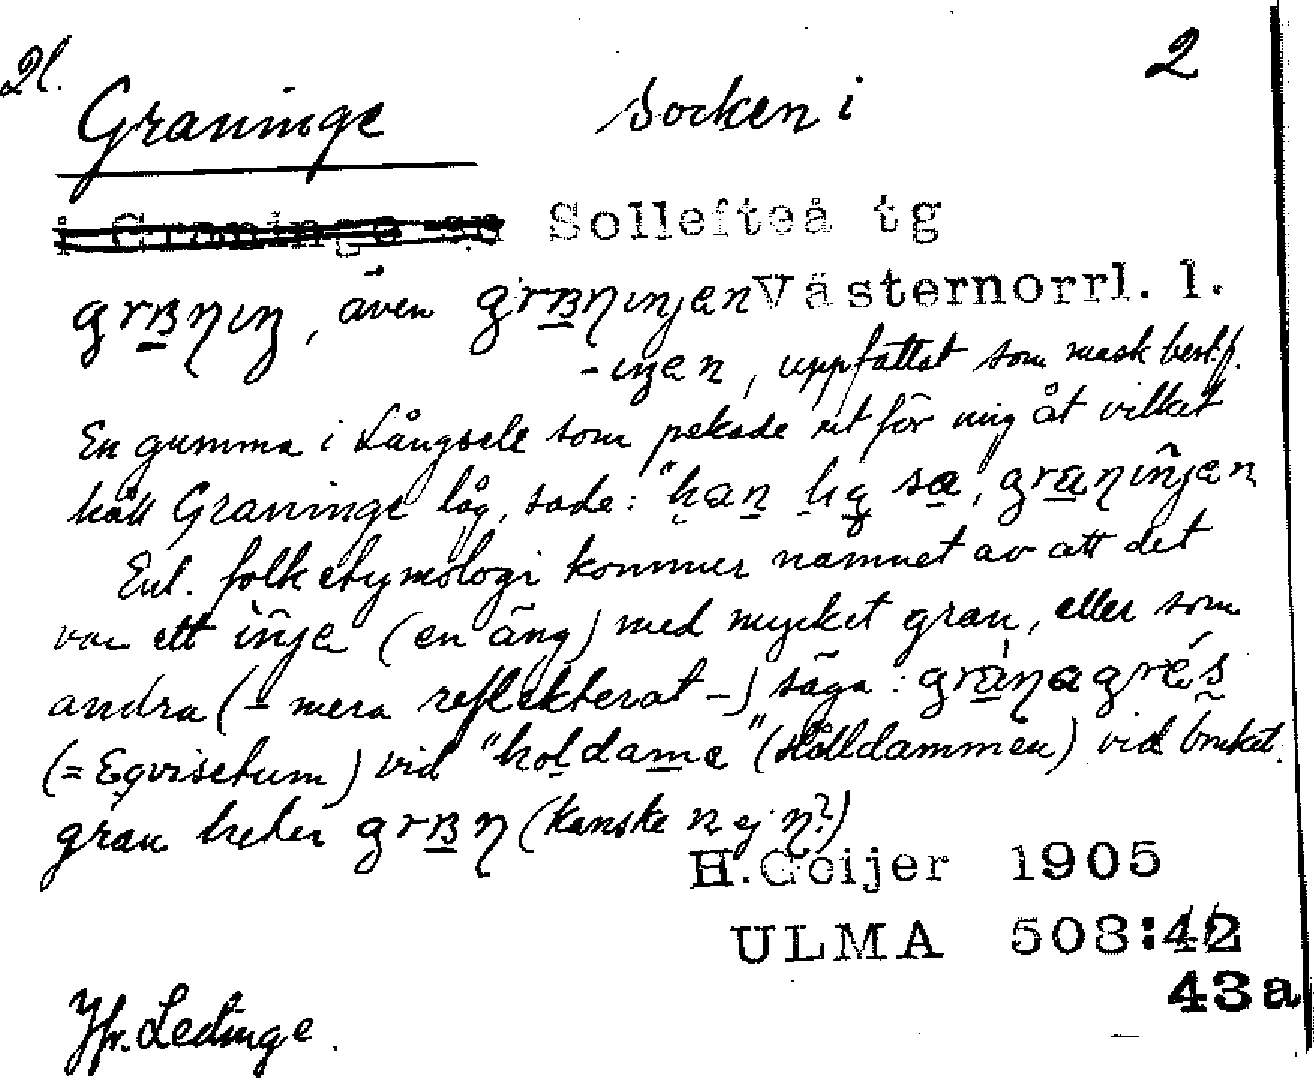 Ål. 2
Graninge socken i
i Graninge sn Sollefteå tg
grʙηıŋ, även grʙηıŋenVästernorrl. l.
-ıŋen, uppfattat som mask best. f.
En gumma i Långsele som pekade ut för mig åt vilket
håll Graninge låg, sade: "han lıg sa, granıŋen
Enl. folketymologi kommer namnet av att det
var ett iŋe (en äng) med mycket gran, eller som
andra (– mera reflekterat –) säga: gránagrés
(= Eqvisetum) vid "holdame" (Hålldammen) vid bruket.
gran heter grʙη (kanske n ej η?)
H.Geijer 1905
ULMA 508:42
43a
Jfr. Ledinge.